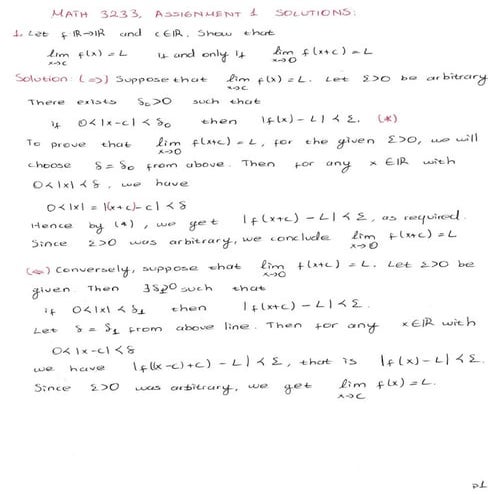 MATH 3233, ASSIGNMENT 1 SOLUTIONS:
1. Let f:ℝ→ℝ and c∈ℝ. Show that
lim x→c f(x) = L if and only if lim x→0 f(x+c) = L
Solution: (⇒) Suppose that lim x→c f(x) = L. Let Σ>0 be arbitrary
There exists δ₀>0 such that
if 0<|x-c|<δ₀ then |f(x)-L|<Σ. (*)
To prove that lim x→0 f(x+c) = L, for the given Σ>0, we will
choose δ = δ₀ from above. Then for any x∈ℝ with
0<|x|<δ, we have
0<|x| = |(x+c)-c|<δ
Hence by (*), we get |f(x+c)-L|<Σ, as required.
Since Σ>0 was arbitrary, we conclude lim x→0 f(x+c) = L
(⇐) Conversely, suppose that lim x→0 f(x+c) = L. Let Σ>0 be
given. Then ∃δ₁>0 such that
if 0<|x|<δ₁ then |f(x+c)-L|<Σ.
Let δ = δ₁ from above line. Then for any x∈ℝ with
0<|x-c|<δ
we have |f((x-c)+c)-L|<Σ, that is |f(x)-L|<Σ.
Since Σ>0 was arbitrary, we get lim x→c f(x) = L.
p1